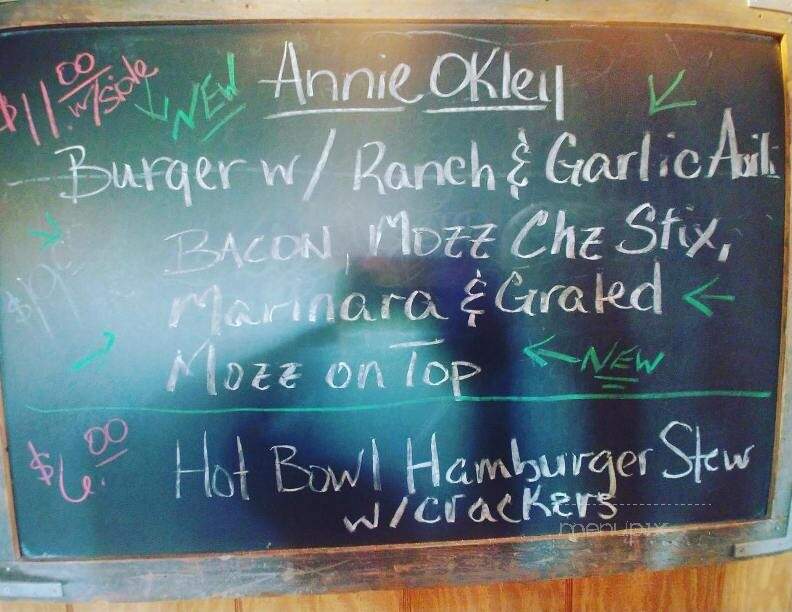 $11.00 w/side
NEW
Annie OKley
Burger w/ Ranch & Garlic
BACON, Mozz Chz Stix,
Marinara & Grated
Mozz on Top
NEW
$6.00
Hot Bowl Hamburger Stew
w/crackers
menupix